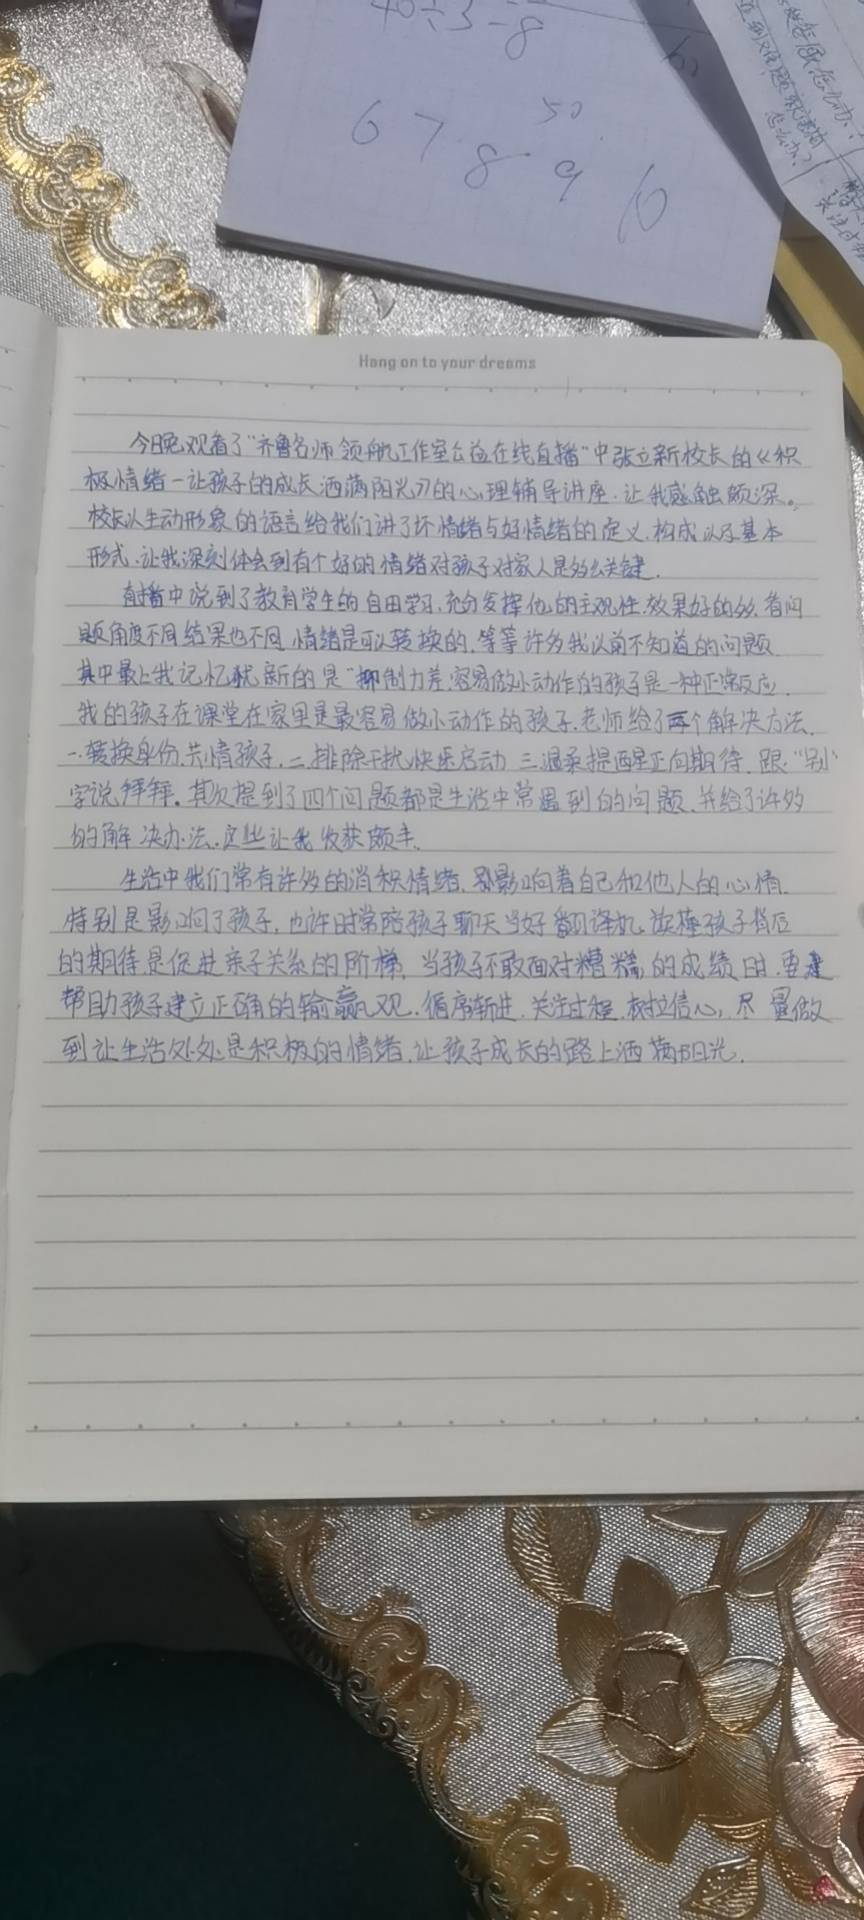 40÷5=8
50
6 7 8 9 10
Hang on to your dreams
今晚观看了"齐鲁名师领航工作室公益在线直播"中张立新校长的《积
极情绪一让孩子的成长洒满阳光》的心理辅导讲座.让我感触颇深。
校长以生动形象的语言给我们讲了坏情绪与好情绪的定义.构成以及基本
形式.让我深刻体会到有个好的情绪对孩子对家人是多么关键.
直播中说到了教育学生的自由学习.充分发挥他的主观性.效果好的多.看问
题角度不同结果也不同.情绪是可以转换的.等等许多我以前不知道的问题.
其中最让我记忆犹新的是"抑制力差.容易做小动作的孩子是一种正常反应.
我的孩子在课堂在家里是最容易做小动作的孩子.老师给了两个解决方法.
一.转换身份.共情孩子.二.排除干扰.快乐启动 三.温柔提醒正向期待.跟"别"
字说拜拜.其次提到了四个问题都是生活中常遇到的问题.并给了许多
的解决办法.这些让我收获颇丰.
生活中我们常有许多的消积情绪.影响着自己和他人的心情.
特别是影响了孩子.也许时常陪孩子聊天当好翻译机.读懂孩子背后
的期待是促进亲子关系的阶梯.当孩子不敢面对糟糕的成绩时.要
帮助孩子建立正确的输赢观.循序渐进.关注过程.树立信心,尽量做
到让生活处处是积极的情绪.让孩子成长的路上洒满阳光.